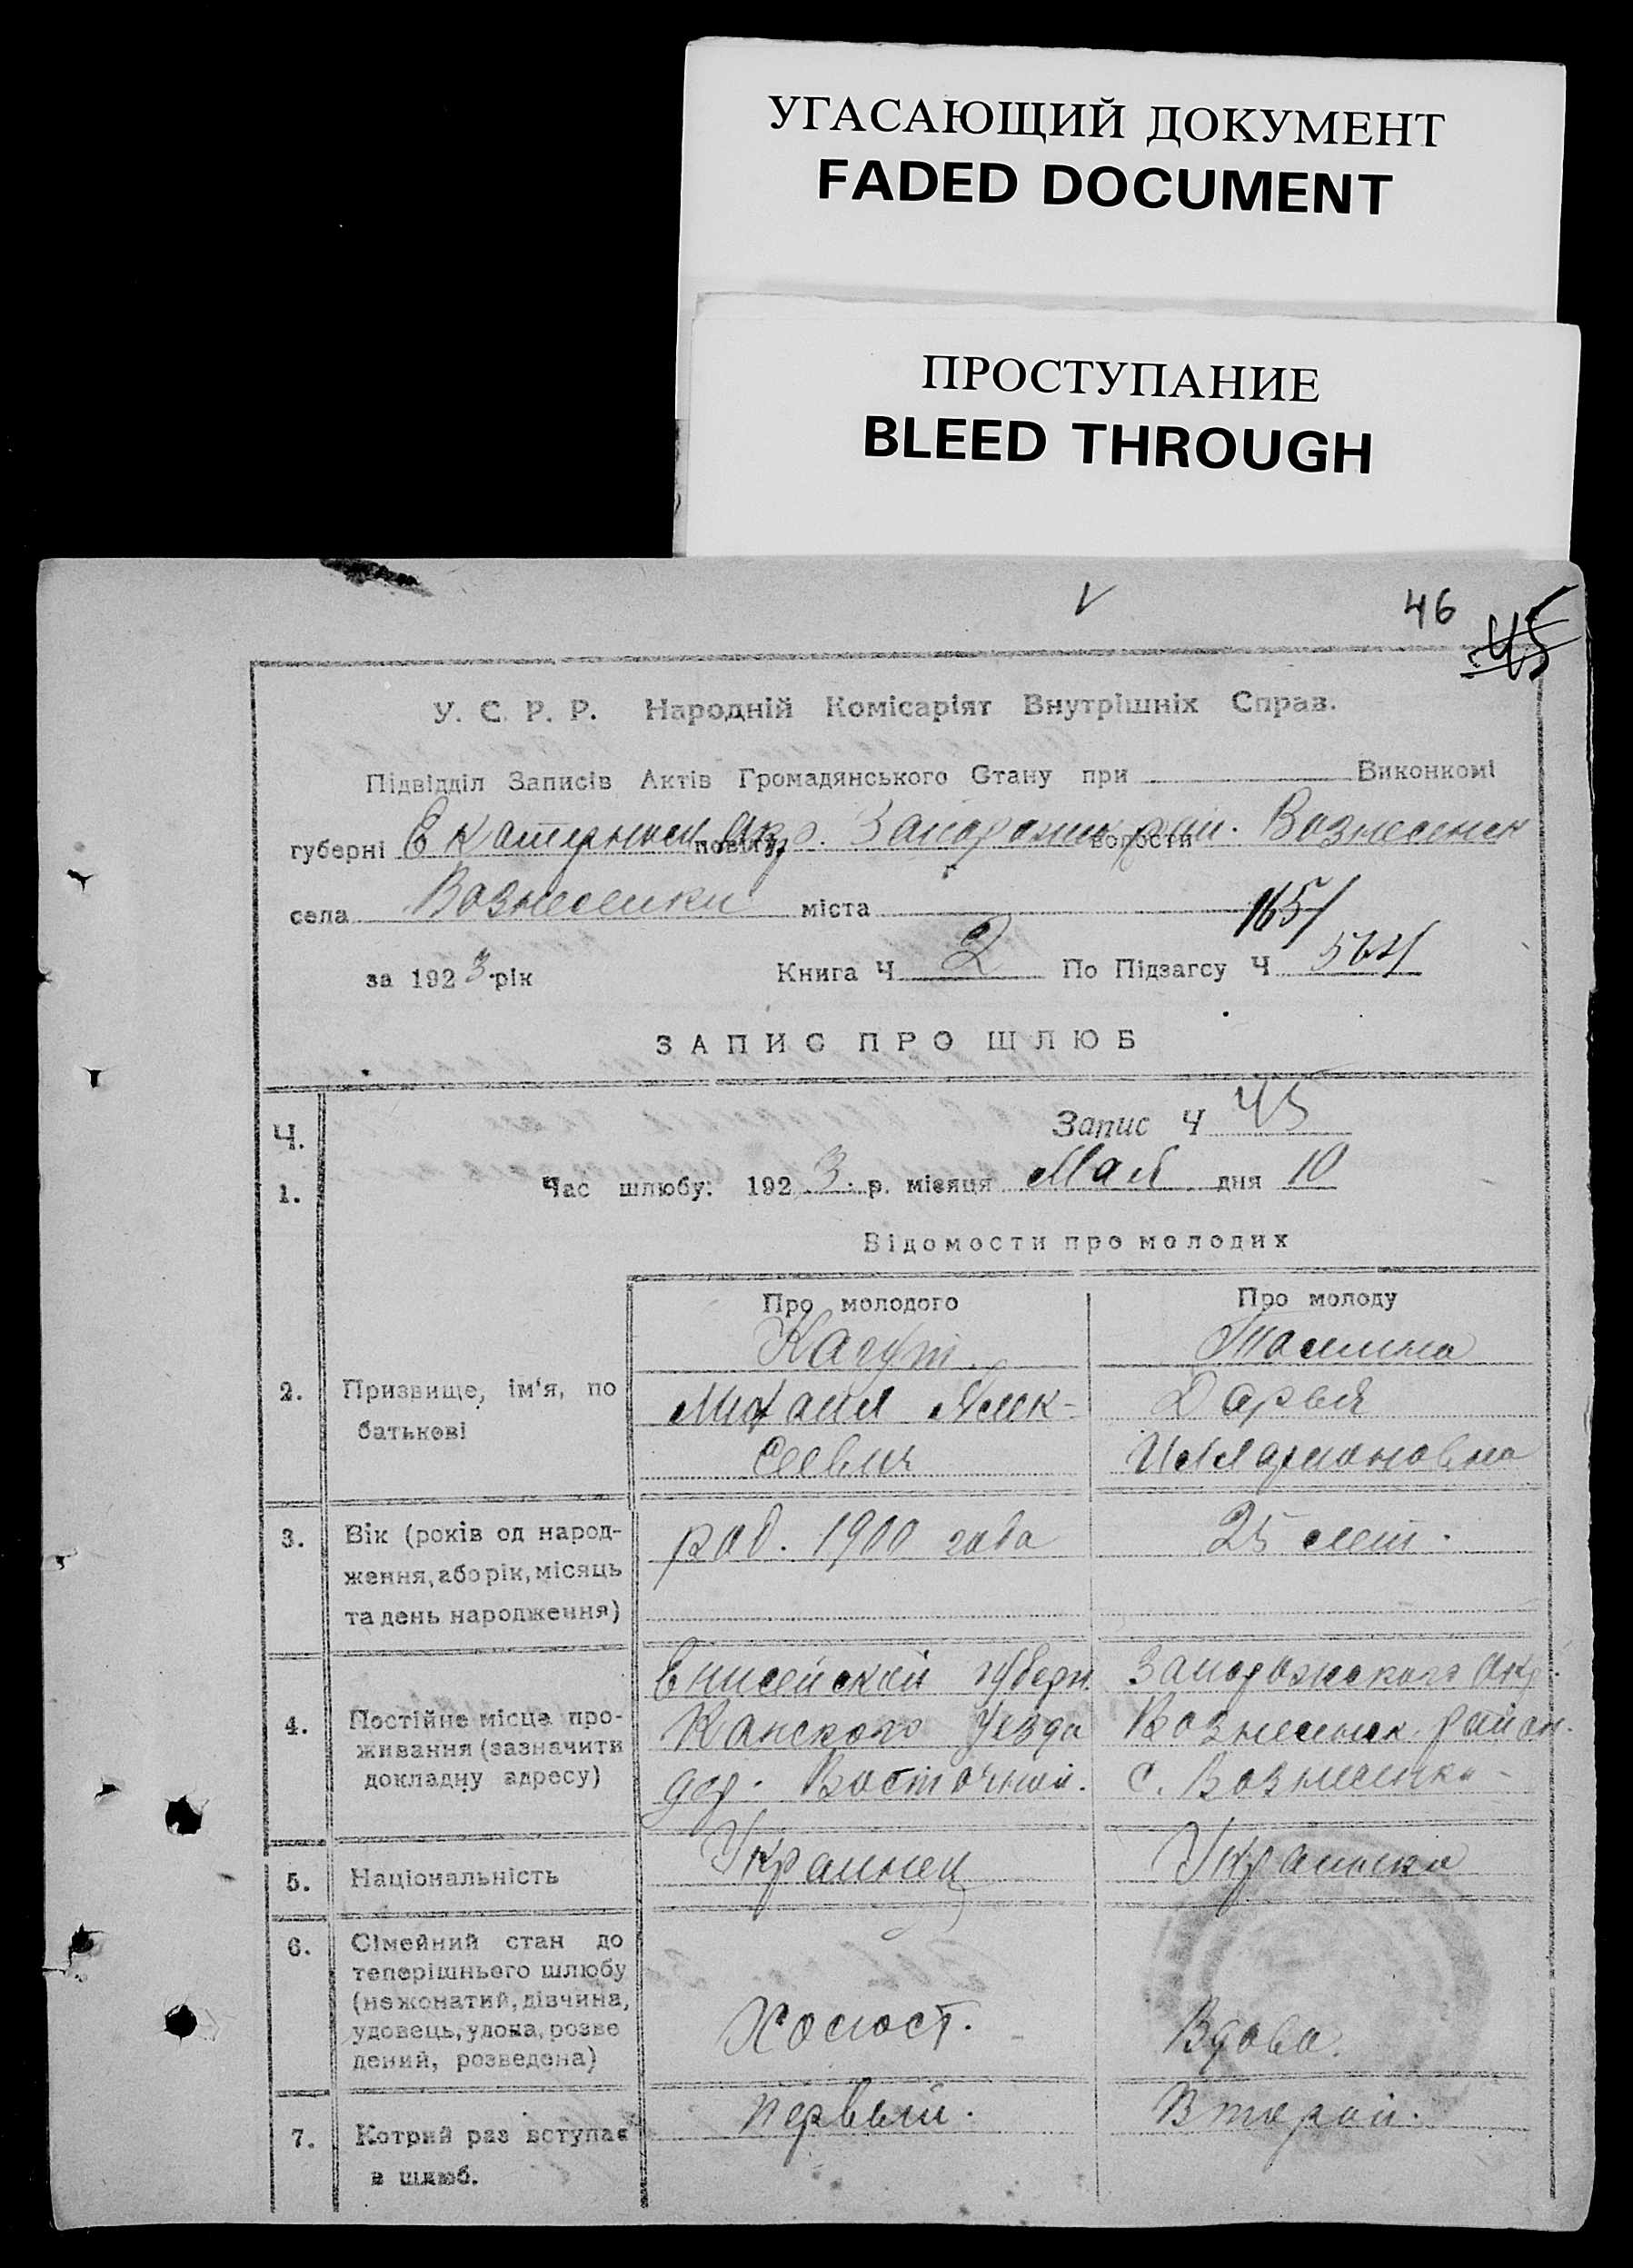 УГАСАЮЩИЙ ДОКУМЕНТ
FADED DOCUMENT
ПРОСТУПАНИЕ
BLEED THROUGH
46 45
У. С. Р. Р. Народній Комісаріят Внутрішніх Справ.
Підвідділ Записів Актів Громадянського Стану при Виконкомі
губерні Екатеринос повіту Окр. Запорожск волости рай. Вознесенск
села Вознесенки міста 165
за 1923 рік Книга Ч 2 По Підзагсу Ч 564
ЗАПИС ПРО ШЛЮБ
Ч. Запис Ч 45
1. Час шлюбу: 1923 р. місяця Мая дня 10
Відомости про молодих
Про молодого Про молоду
Кагут
2. Призвище, ім'я, по Михаил Алек- Дарья
батькові сеевич Илларионовна
3. Вік (років од народ- род. 1900 года 25 лет.
ження, або рік, місяць
та день народження)
Енисейской губерн. Запорожского Окр.
4. Постійне місце про- Канского Уезда Вознесенск. район.
живання (зазначити
докладну адресу) дер. Восточной. с. Вознесенка
5. Національність Украинец Украинка
6. Сімейний стан до
теперішнього шлюбу
(нежонатий, дівчина,
удовець, удова, розве
дений, розведена) Холост. Вдова.
7. Котрий раз вступає первый. Второй.
в шлюб.